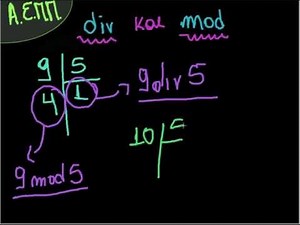 Α.Ε.ΠΠ
div και mod
9 5
4 1
9div5
10 5
9mod5